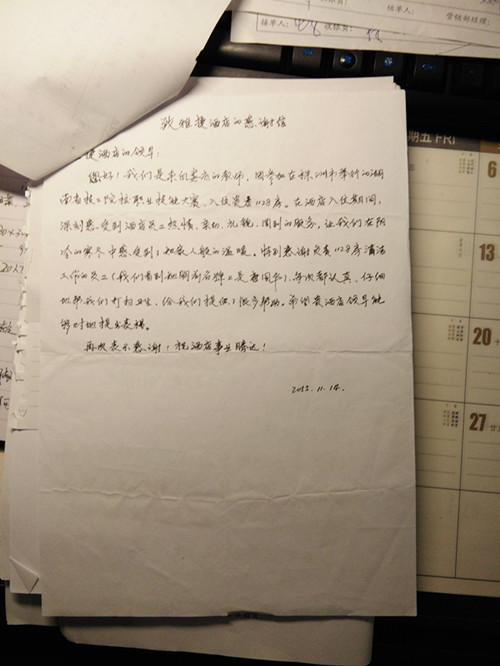 接单人: 接单人: 营销部经理:
致雅捷酒店的感谢信
捷酒店的领导:
您好!我们是来自娄底的教师,因参加在株洲市举行的湖
南省技工院校职业技能大赛,入住贵店1128房。在酒店入住期间,
深刻感受到酒店员工热情、亲切、礼貌、周到的服务,让我们在阴
冷的寒冬中感受到了如家人般的温暖,特别感谢负责1128房清洁
工作的员工(我们看到她胸前名牌上是 ),每次都认真、仔细
地帮我们打扫卫生,给我们提供了很多帮助。希望贵酒店领导能
够对她提出表扬。
再次表示感谢!祝酒店事业腾达!
2012.11.14.
期五 FRI
6
13
20
27